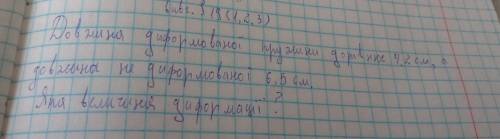 Вивс. § 19 (1, 2, 3)
Довжина диформованої пружини дорівнює 4,2 см, а
довжина не диформованої 6,5 см.
Яка величина диформації?